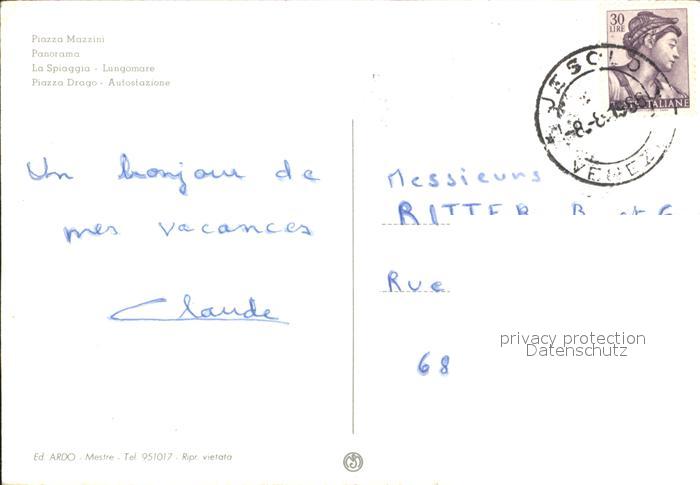 Piazza Mazzini
Panorama
La Spiaggia - Lungomare
Piazza Drago - Autostazione
30
LIRE
ITALIANE
JESOLO
VENEZIA
Un bonjour de
mes vacances
Claude
Messieurs
RITTER
Rue
68
privacy protection
Datenschutz
Ed. ARDO - Mestre - Tel. 951017 - Ripr. vietata